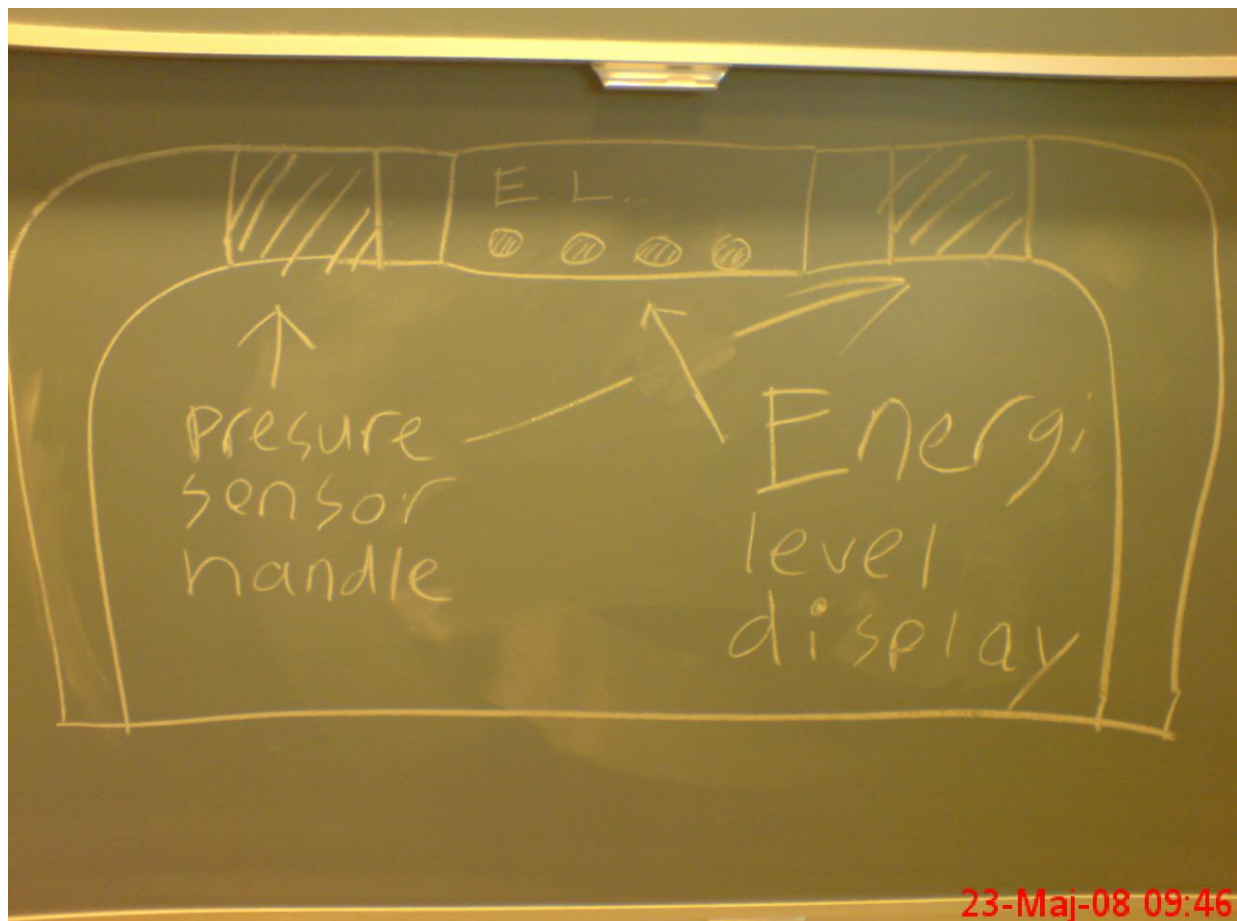 E.L..
presure
sensor
handle
Energi
level
display
23-Maj-08 09:46